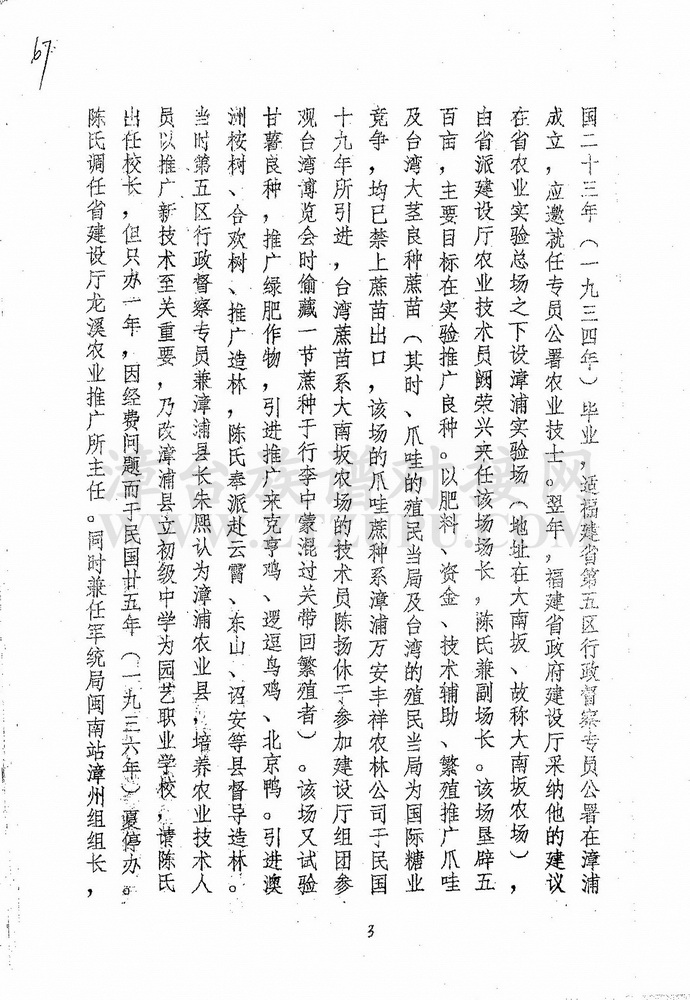 67
国二十三年（一九三四年）毕业，适福建省第五区行政督察专员公署在漳浦
成立，应邀就任专员公署农业技士。翌年，福建省政府建设厅采纳他的建议
在省农业实验总场之下设漳浦实验场（地址在大南坂、故称大南坂农场），
由省派建设厅农业技术员阙荣兴来任该场场长，陈氏兼副场长。该场垦辟五
百亩，主要目标在实验推广良种。以肥料、资金、技术辅助、繁殖推广爪哇
及台湾大茎良种蔗苗（其时、爪哇的殖民当局及台湾的殖民当局为国际糖业
竞争，均已禁上蔗苗出口，该场的爪哇蔗种系漳浦万安丰祥农林公司于民国
十九年所引进，台湾蔗苗系大南坂农场的技术员陈扬休于参加建设厅组团参
观台湾博览会时偷藏一节蔗种于行李中蒙混过关带回繁殖者）。该场又试验
甘薯良种，推广绿肥作物，引进推广来克亨鸡、逻逗鸟鸡、北京鸭。引进澳
洲桉树、合欢树、推广造林，陈氏奉派赴云霄、东山、诏安等县督导造林。
当时第五区行政督察专员兼漳浦县长朱熙认为漳浦农业县，培养农业技术人
员以推广新技术至关重要，乃改漳浦县立初级中学为园艺职业学校，请陈氏
出任校长，但只办一年，因经费问题而于民国廿五年（一九三六年）夏停办。
陈氏调任省建设厅龙溪农业推广所主任。同时兼任军统局闽南站漳州组组长，
3
漳台族谱对接网
WWW.ZTZUPU.COM